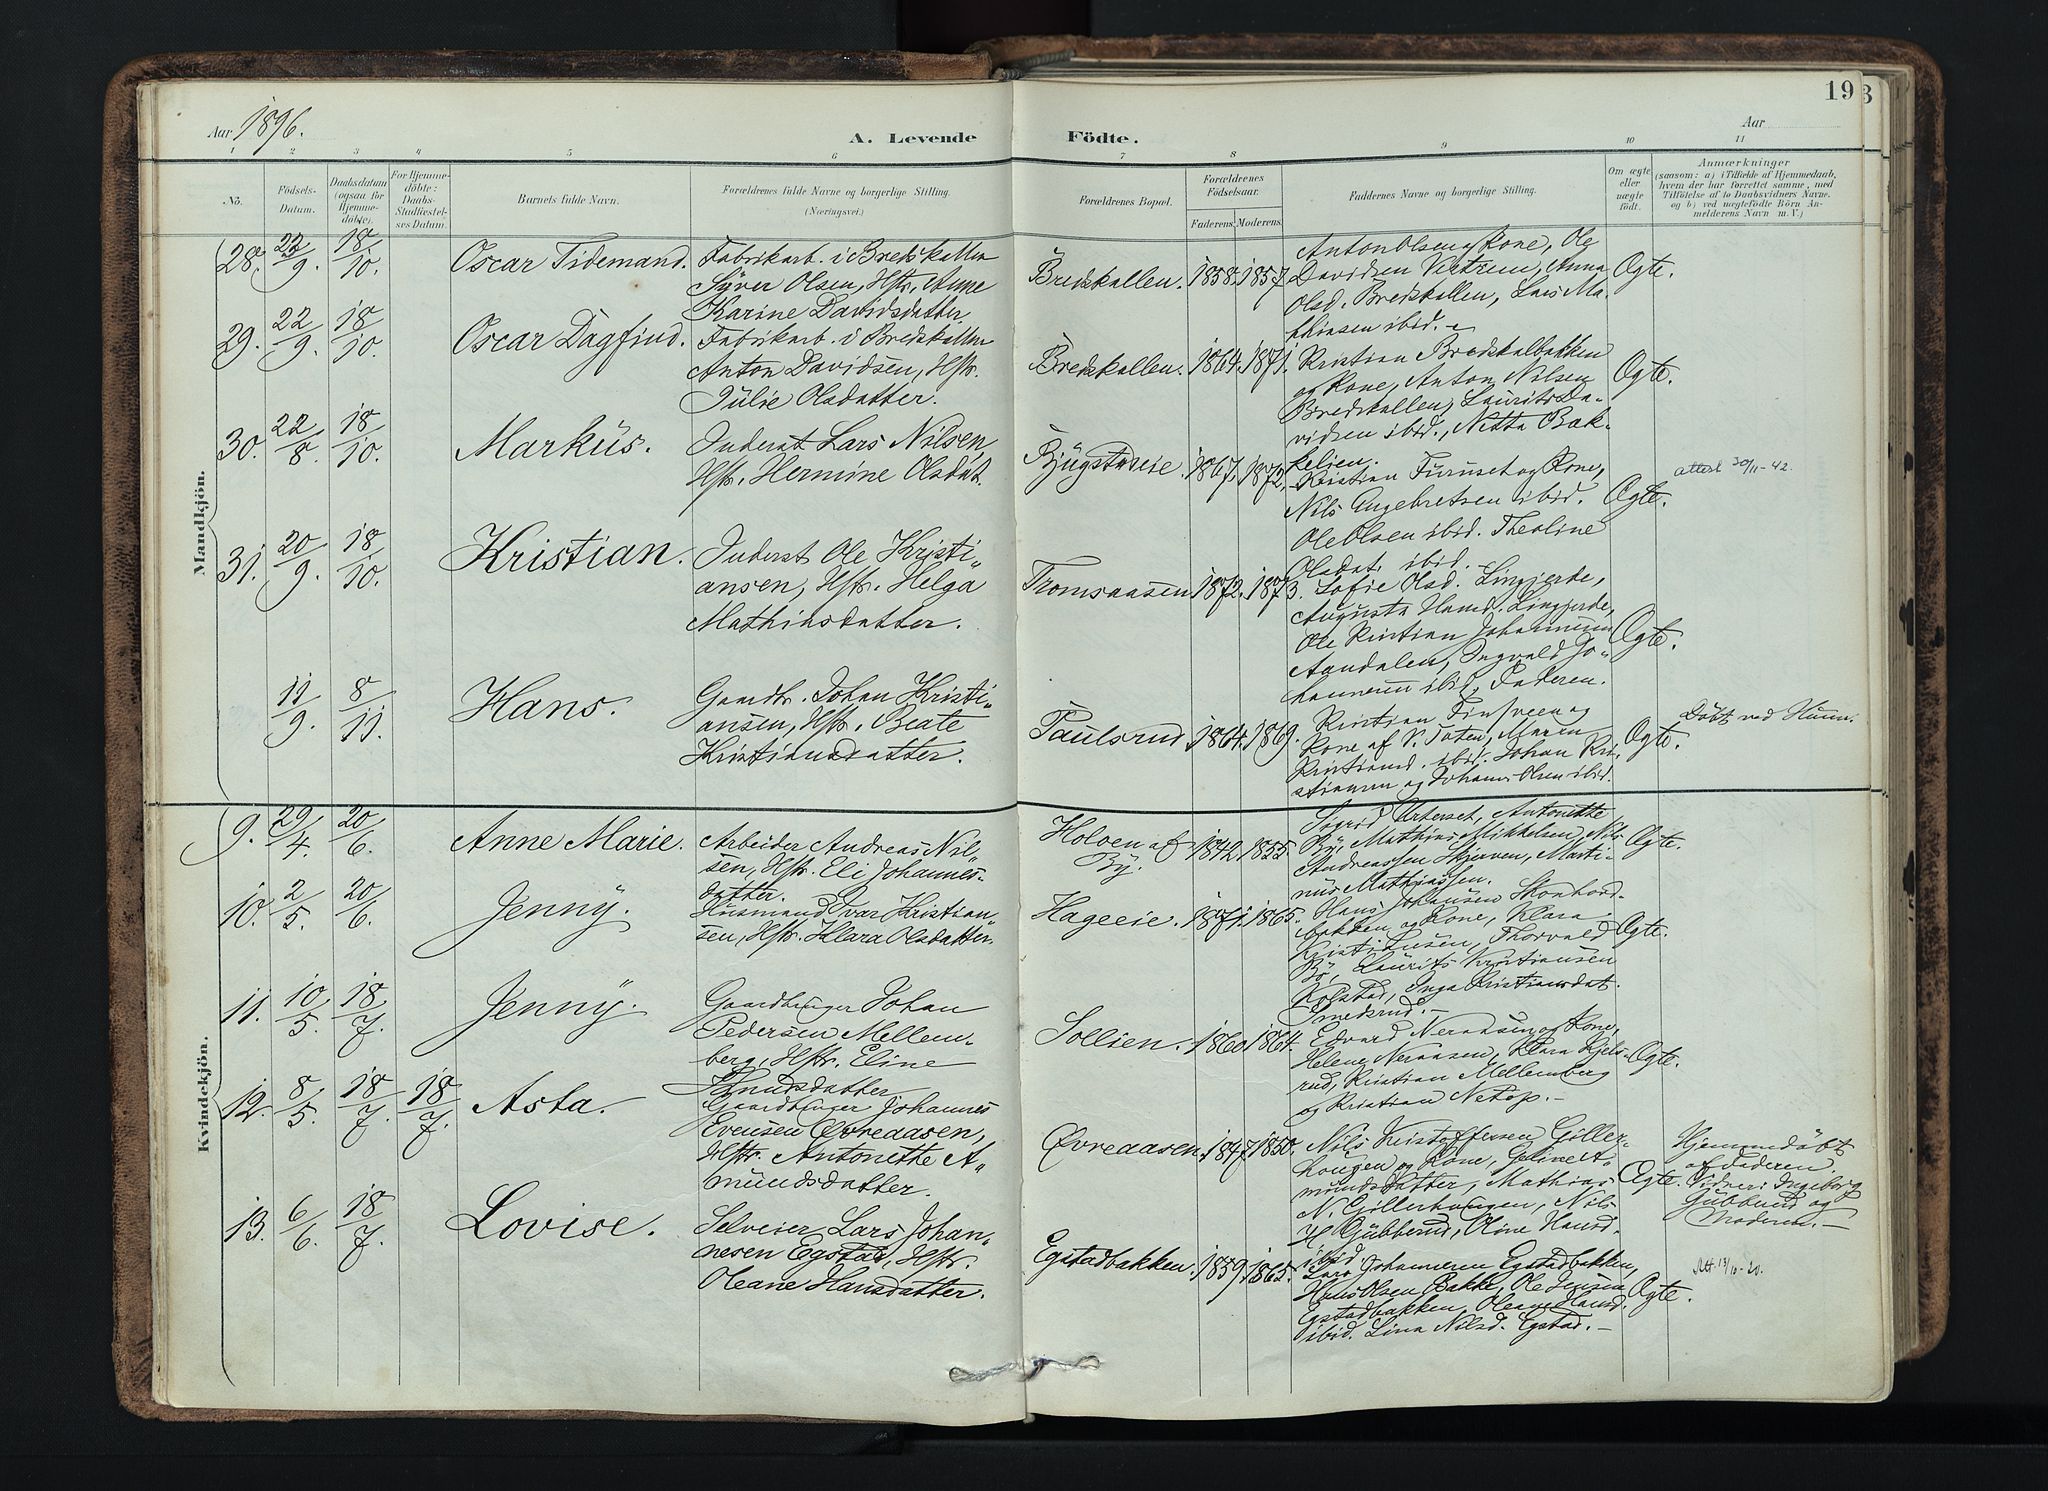 19
Aar 1896.
A. Levende
Födte.
Aar
1 2 3 4 5 6 7 8 9 10 11
No.
Födsels-
Datum.
Daabsdatum
(ogsaa for
Hjemme-
döbte).
For Hjemme-
döbte:
Daabs-
Stadfæstel-
ses Datum.
Barnets fulde Navn.
Forældrenes fulde Navne og borgerlige Stilling.
(Næringsvei.)
Forældrenes Bopæl.
Forældrenes
Födselsaar.
Faderens. Moderens.
Faddernes Navne og borgerlige Stilling.
Om ægte
eller
uægte
födt.
Anmærkninger
(saasom: a) i Tilfælde af Hjemmedaab,
hvem der har forrettet samme, med
Tilföielse af to Daabsvidners Navne.
og b) ved uægtefödte Börn An-
melderens Navn m. V.)
Mandkjön.
28. 22/9. 18/10. Oscar Tidemand.
Fabrikarb. i Bredskallen
Syver Olsen, Hstr. Anne
Karine Davidsdatter.
Bredskallen. 1858. 1857.
Anton Olsen og Kone, Ole
Davidsen Vestrem, Anna
Olsd. Bredskallen, Lars Ma-
thiasen ibid.
Ægte.
29. 22/9. 18/10. Oscar Dagfind.
Fabrikarb. i Bredskallen
Anton Davidsen, Hstr.
Julie Olsdatter.
Bredskallen. 1864. 1871.
Kristian Bredskalbakken
og Kone, Anton Nilsen
Bredskallen, Laurits Da-
vidsen ibid., Netta Bak-
kelien.
Ægte.
30. 22/8. 18/10. Markus.
Inderst Lars Nilsen,
Hstr. Hermine Olsdat.
Bjugstadeie 1867. 1872.
Kristian Furuset og Kone,
Nils Engebretsen ibid.
Ole Olsen ibid. Theoline
Olsdat. ibid.
Ægte.
attest 30/11-42.
31. 20/9. 18/10. Kristian.
Inderst Ole Kristi-
ansen, Hstr. Helga
Mathiasdatter.
Tromsaasen 1872. 1873.
Sofie Olsd. Lingjerde,
Augusta Hansd. Lingjerde,
Ole Kristian Johannesen
Aandalen, Ingvald Jo-
hannesen ibid, Faderen.
Ægte.
11/9. 8/11. Hans.
Gaardbr. Johan Kristi-
ansen, Hstr. Beate
Kristiansdatter.
Paulsrud 1864. 1869.
Kristian Finsveen og
Kone af V. Toten, Maren
Kristiansd. ibid. Johan Kri-
stiansen og Johans Olsen ibid.
Ægte.
Döbt ved Hunn.
Kvindekjön.
9. 29/4. 20/6. Anne Marie.
Arbeider Andreas Nil-
sen, Hstr. Eli Johannes-
datter.
Holven af
By. 1842 1855.
Sigrid Urterset, Antonette
By, Mathias Mikkelsen, Nils
Andreassen Skjerven, Marti-
nus Mathiassen.
Ægte.
10. 2/5. 20/6. Jenny.
Husmand Ivar Kristian-
sen, Hstr. Klara Olsdatter.
Hageeie. 1871. 1865.
Hans Johansen Stenhord-
bakken og Kone, Klara
Kristiansen, Thorvald
By, Laurits Kristiansen
Kolstad, Inga Kristiansdat.
Smedsrud.
Ægte.
11. 10/5. 18/7. Jenny.
Gaardbruger Johan
Pedersen Mellem-
berg, Hstr. Eline
Knudsdatter
Sollien. 1860 1864.
Edvard Neraasen og Kone,
Helene Neraasen, Klara Kjels-
rud, Kristian Mellemberg
og Kristian Netop.
Ægte.
12. 8/5. 18/7. 18/7. Asta.
Gaardbruger Johannes
Evensen Øvreaasen,
Hstr. Antonette A-
mundsdatter.
Øvreaasen. 1847 1850.
Nils Kristoffersen Giller-
haugen og Kone, Eline A-
mundsdatter, Mathias
N. Gillerhaugen, Nils
H. Gubberud, Oline Hansd.
ibid.
Ægte.
Hjemmedöbt
af Faderen.
Vidner: Ingeborg
Gubberud og
Moderen.
13. 6/6. 18/7. Lovise.
Selveier Lars Johan-
nesen Egstad, Hstr.
Oleane Hansdatter.
Egstadbakken. 1859. 1865.
Lars Johannesen Egstadbakken,
Hans Olsen Bakke, Ole Jensen
Egstadbakken, Oleane Hansd.
ibid. Lina Nilsd. Egstad.
Ægte.
Att. 13/10-20.